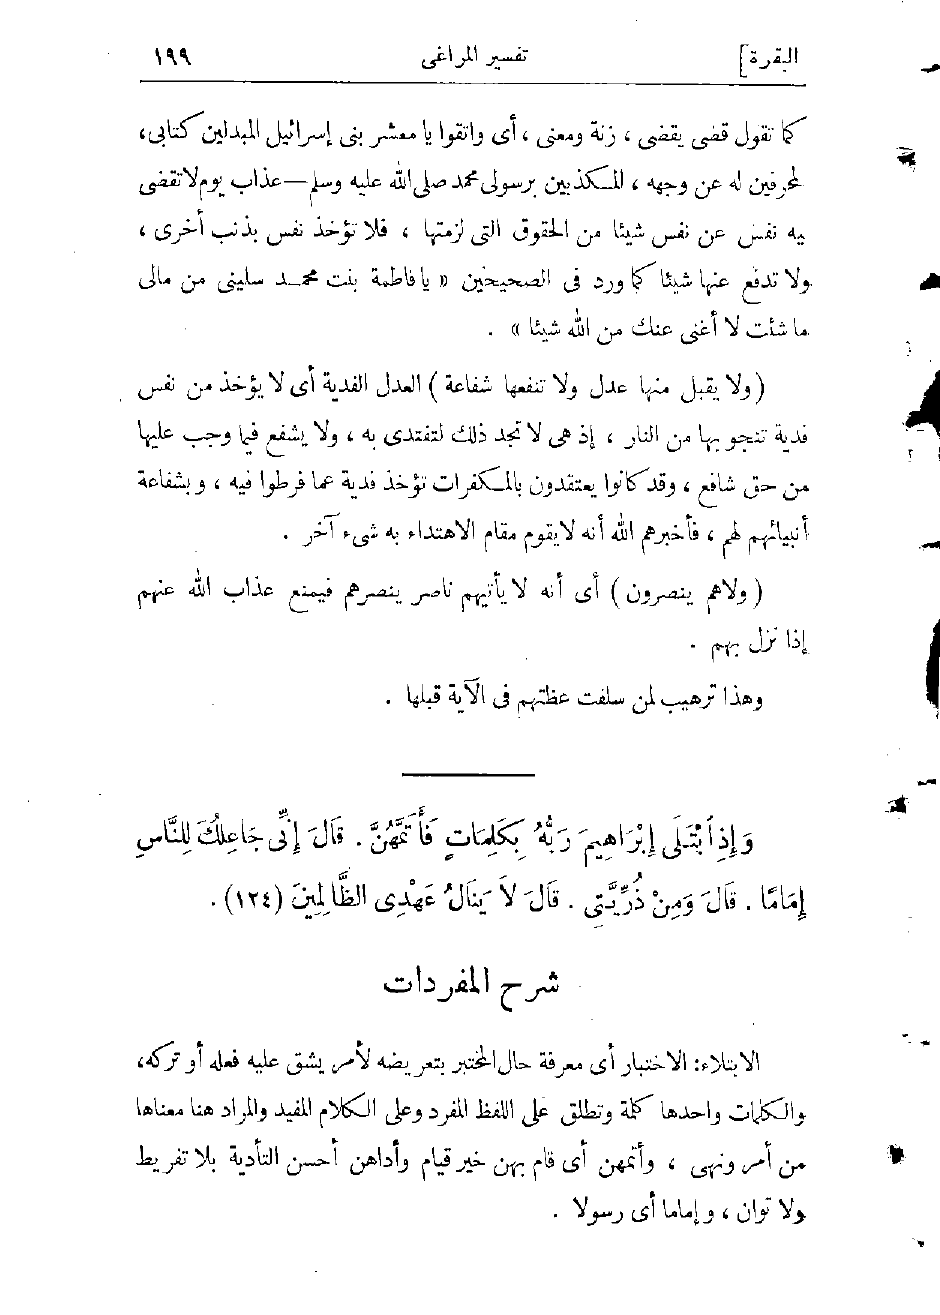 البقرة]
تفسير المراغى
١٩٩
كما تقول قضى يقضى ، زنة ومعنى ، أى واتقوا يا معشر بنى إسرائيل المبدلين كتابى،
لمحرفين له عن وجهه ، المكذبين برسولى محمد صلى الله عليه وسلم—عذاب يوم لا تقضى
يه نفس عن نفس شيئا من الحقوق التى لزمتها ، فلا تؤخذ نفس بذنب أخرى ،
ولا تدفع عنها شيئا كما ورد فى الصحيحين « يا فاطمة بنت محمد سلينى من مالى
ما شئت لا أغنى عنك من الله شيئا » .
( ولا يقبل منها عدل ولا تنفعها شفاعة ) العدل الفدية أى لا يؤخذ من نفس
فدية تنجو بها من النار ، إذ هى لا تجد ذلك لتفتدى به ، ولا يشفع فيما وجب عليها
من حق شافع ، وقد كانوا يعتقدون بالمكفرات تؤخذ فدية عما فرطوا فيه ، وبشفاعة
أنبيائهم لهم ، فأخبرهم الله أنه لا يقوم مقام الاهتداء به شىء آخر .
( ولاهم ينصرون ) أى أنه لا يأتيهم ناصر ينصرهم فيمنع عذاب الله عنهم
إذا نزل بهم .
وهذا ترهيب لمن سلفت عظتهم فى الآية قبلها .
وَإِذِ ٱبْتَلَى إِبْرَاهِيمَ رَبُّهُ بِكَلِمَاتٍ فَأَتَمَّهُنَّ . قَالَ إِنِّى جَاعِلُكَ لِلنَّاسِ
إِمَامًا . قَالَ وَمِنْ ذُرِّيَّتِى . قَالَ لاَ يَنَالُ عَهْدِى الظَّالِمِينَ (١٢٤) .
شرح المفردات
الابتلاء: الاختبار أى معرفة حال المختبر بتعريضه لأمر يشق عليه فعله أو تركه،
والكلمات واحدها كلمة وتطلق على اللفظ المفرد وعلى الكلام المفيد والمراد هنا معناها
من أمر ونهى ، وأتمهن أى قام بهن خير قيام وأداهن أحسن التأدية بلا تفريط
ولا توان ، وإماما أى رسولا .